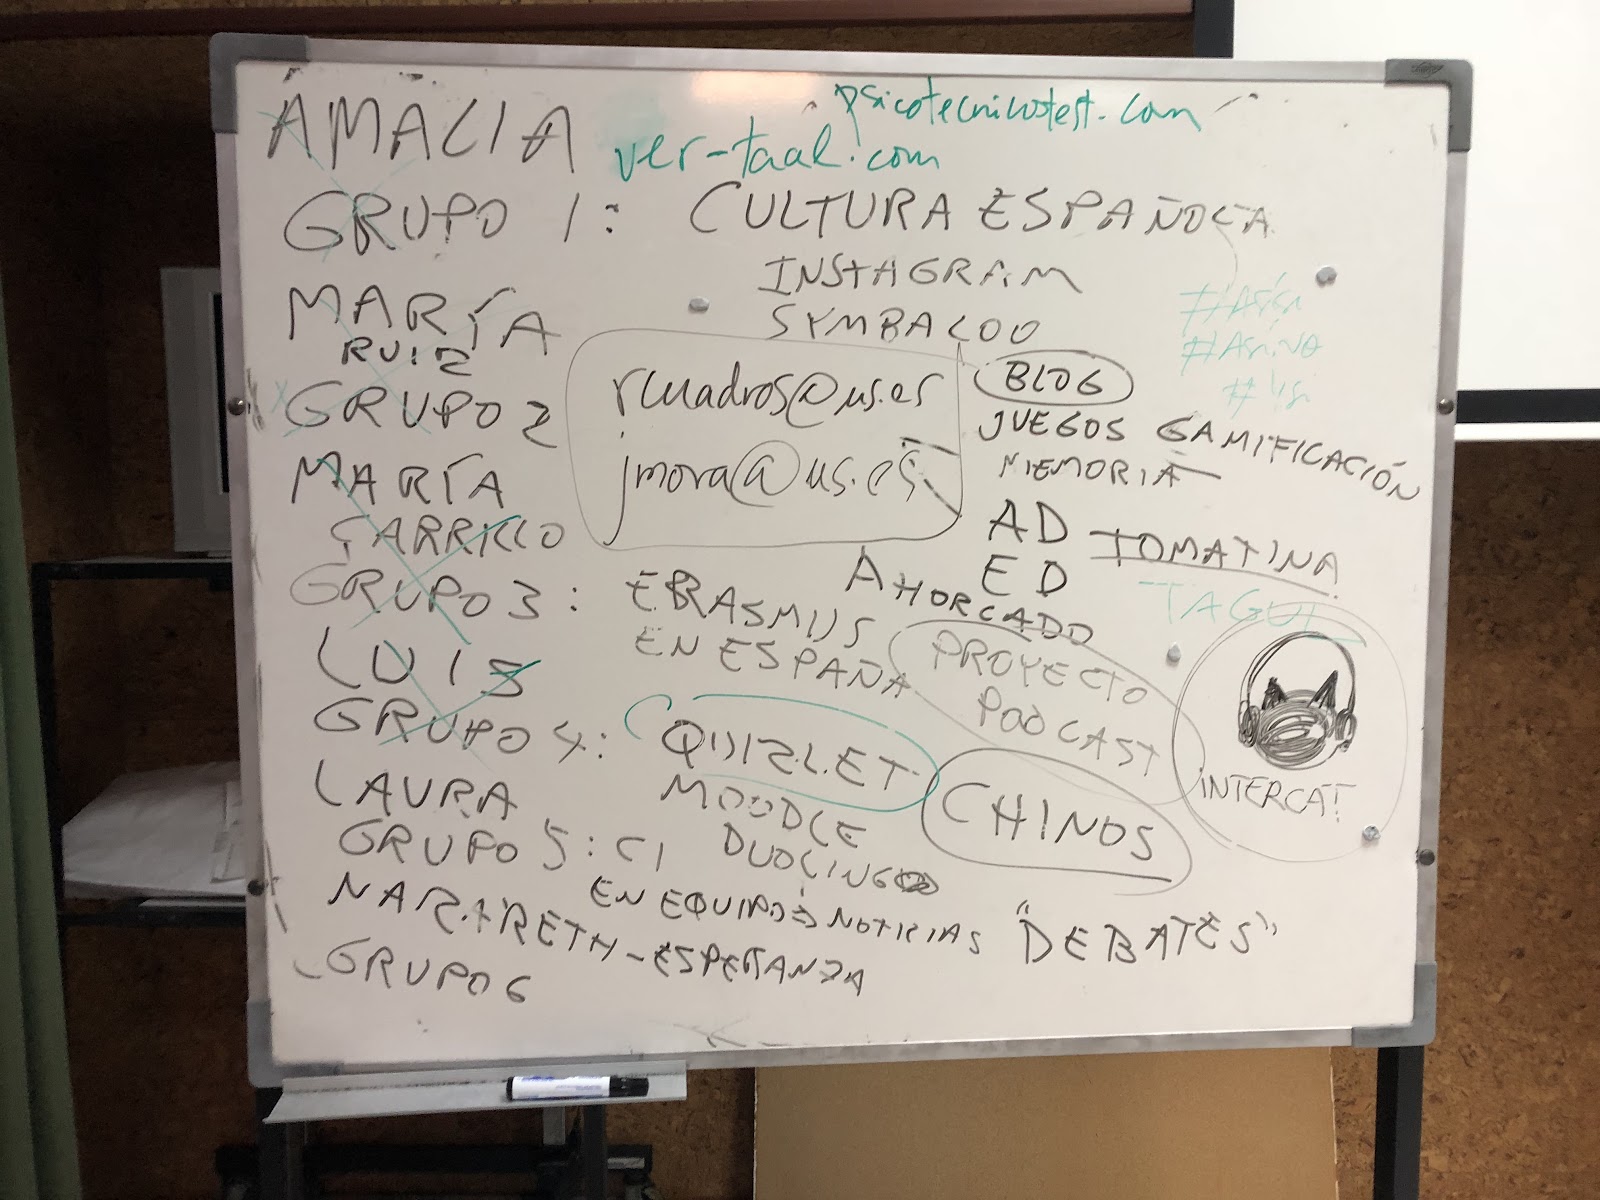 psicotecnicotest.com
AMALIA
ver-taal.com
GRUPO 1: CULTURA ESPAÑOLA
INSTAGRAM
MARÍA
RUIZ
SYMBALOO
rcuadros@us.es
BLOG
GRUPO 2
JUEGOS GAMIFICACIÓN
jmora@us.es
MEMORIA
MARÍA
CARRILLO
AD TOMATINA
ED
AHORCADO
TAGUL
GRUPO 3: ERASMUS
EN ESPAÑA
PROYECTO
PODCAST
LUIS
GRUPO 4: QUIZLET
INTERCAT!
LAURA
MOODLE
CHINOS
GRUPO 5: C1 DUOLINGO
EN EQUIPOS NOTICIAS "DEBATES"
NAZARETH-ESPERANZA
GRUPO 6